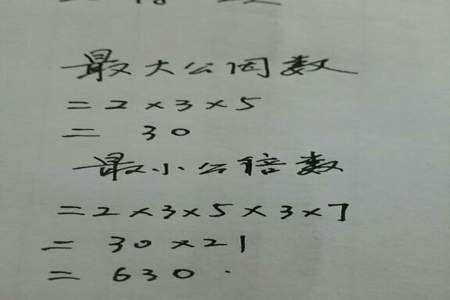 最大公因数
=2×3×5
= 30
最小公倍数
=2×3×5×3×7
= 30×21
= 630.